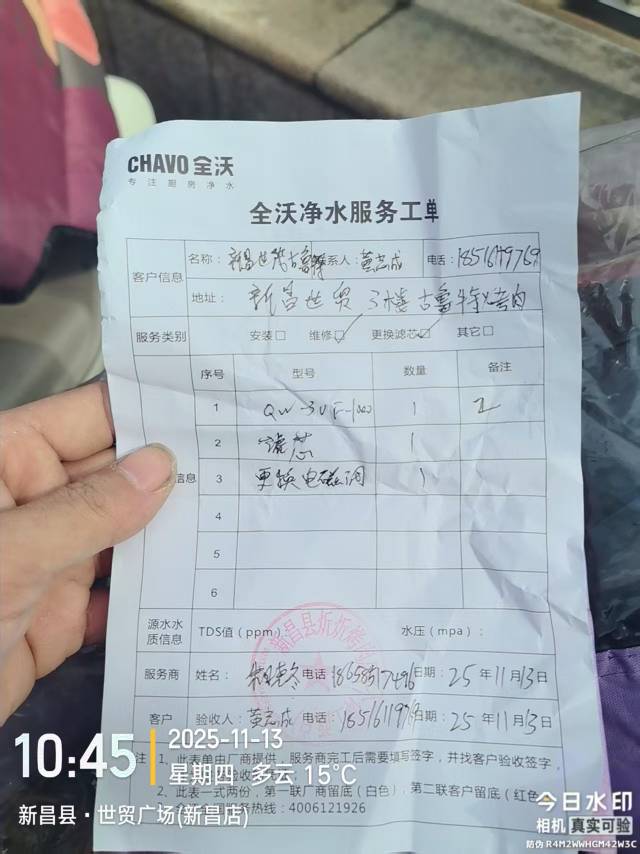 CHAVO 全沃
专注厨房净水
全沃净水服务工单
客户信息
名称：新昌世贸古鲁 联系人：黄志成 电话：
地址：新昌世贸3楼古鲁 烤肉
服务类别 安装□ 维修☑ 更换滤芯☑ 其它□
序号 型号 数量 备注
1 QW-3UF-1000 1 2
2 滤芯 1
信息 3 更换电磁阀 1
4
5
6
源水水质信息 TDS值（ppm） 水压（mpa）：
新昌县
服务商 姓名： 电话 18658517496 日期：25年11月13日
客户 验收人：黄志成 电话： 日期：25年11月13日
1、此表单由厂商提供，服务商完工后需要填写签字，并找客户验收签字，
2、此表一式两份，第一联厂商留底（白色），第二联客户留底（红色
服务热线：4006121926
10:45
2025-11-13
星期四·多云 15℃
新昌县·世贸广场(新昌店)
今日水印
相机 真实可验
防伪 R4M2WWHGM42W3C